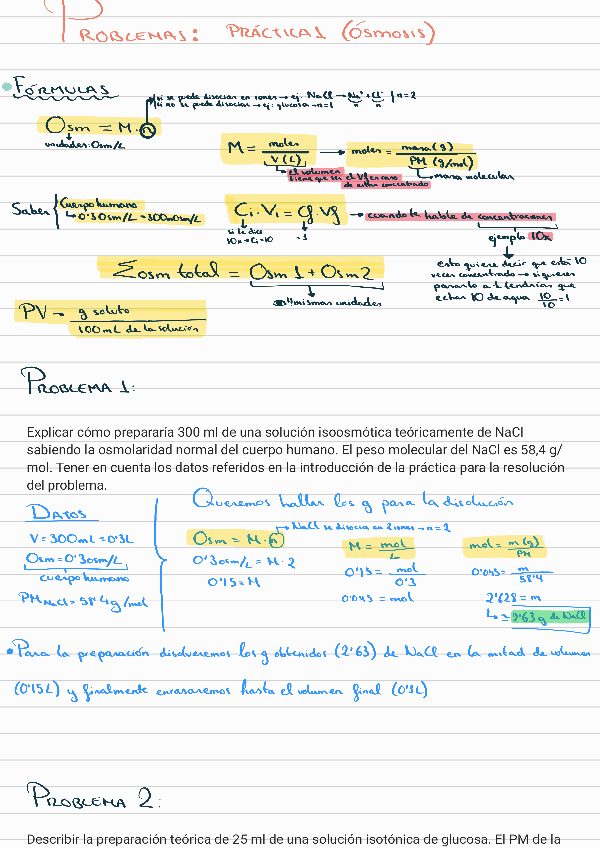 PROBLEMAS: PRÁCTICA 1 (ÓSMOSIS)
FÓRMULAS
si se puede disociar en iones → ej. NaCl → Na⁺ + Cl⁻ | n=2
si no se puede disociar → ej. glucosa → n=1
Osm = M · n
unidades: Osm/L
M = moles / V (L) → moles = masa (g) / PM (g/mol)
el volumen
tiene que ser el Vf en caso
de estar concentrado
masa molecular
Saber
Cuerpo humano
↳ 0'30sm/L = 300mOsm/L
Ci · Vi = Cf · Vf → cuando te hable de concentraciones
si te dice
10x → Ci = 10
=1
ejemplo 10x
esto quiere decir que está 10
veces concentrado → si quieres
pasarlo a 1 tendrías que
echar 10 de agua 10/10 = 1
Σosm total = Osm 1 + Osm 2
mismas unidades
PV → g soluto / 100 mL de la solución
PROBLEMA 1:
Explicar cómo prepararía 300 ml de una solución isoosmótica teóricamente de NaCl
sabiendo la osmolaridad normal del cuerpo humano. El peso molecular del NaCl es 58,4 g/
mol. Tener en cuenta los datos referidos en la introducción de la práctica para la resolución
del problema.
DATOS
V = 300mL = 0'3L
Osm = 0'3osm/L
cuerpo humano
PM NaCl = 58'4g/mol
Queremos hallar los g para la disolución
NaCl se disocia en 2 iones → n = 2
Osm = M · n
0'3osm/L = M · 2
0'15 = M
M = mol / L
0'15 = mol / 0'3
0'045 = mol
mol = m (g) / PM
0'045 = m / 58'4
2'628 = m
↳ ≃ 2'63 g de NaCl
• Para la preparación disolveremos los g obtenidos (2'63) de NaCl en la mitad de volumen
(0'15L) y finalmente enrasaremos hasta el volumen final (0'3L)
PROBLEMA 2:
Describir la preparación teórica de 25 ml de una solución isotónica de glucosa. El PM de la